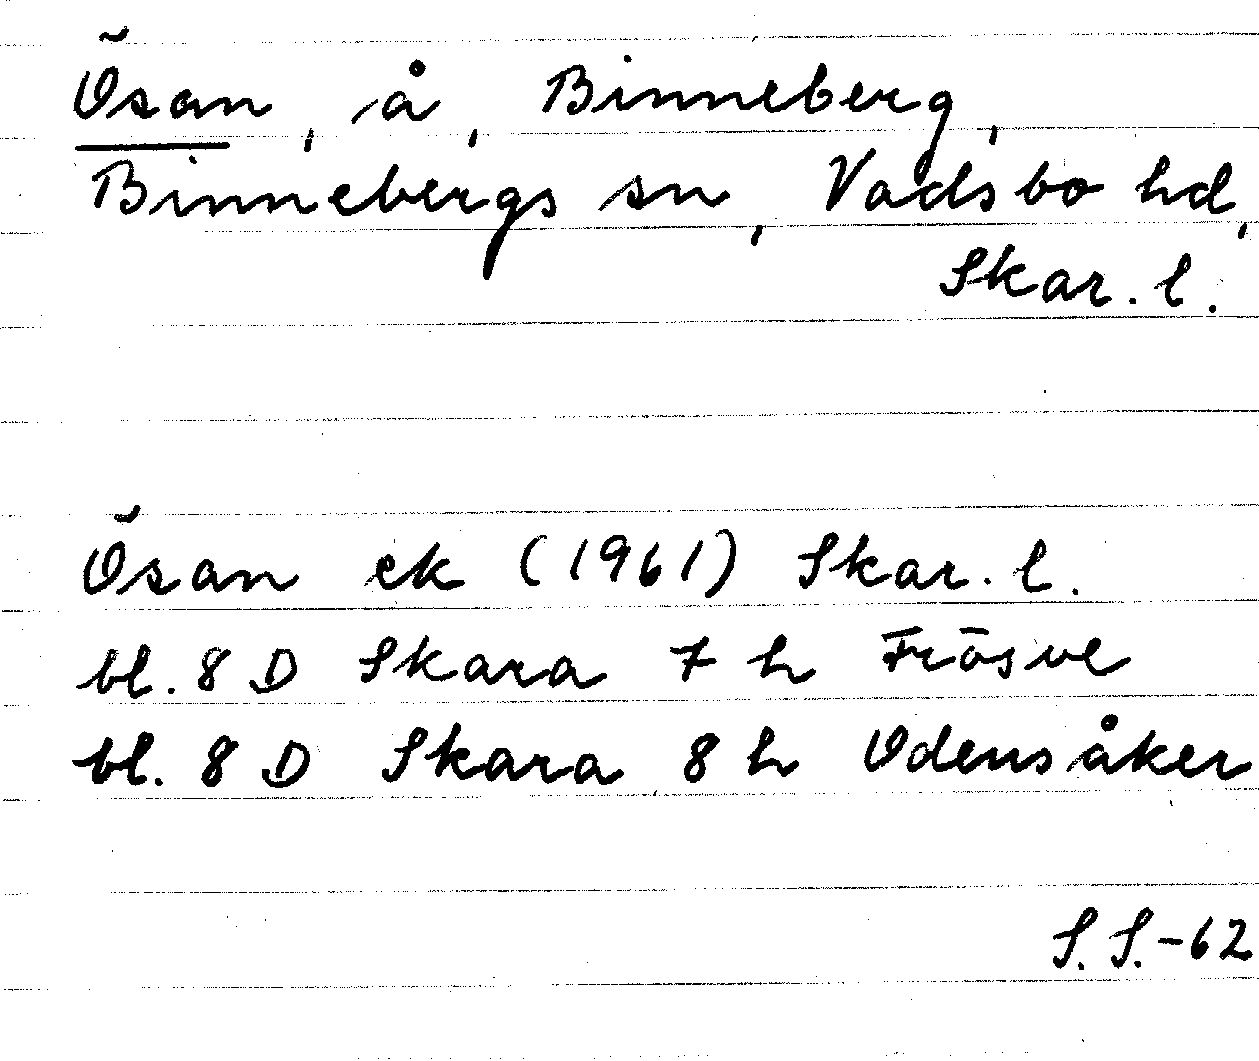 Ösan, å, Binneberg,
Binnebergs sn, Vadsbo hd,
Skar. l.
Ösan ek (1961) Skar. l.
bl. 8 D Skara 7 h Frösve
bl. 8 D Skara 8 h Odensåker
S. S.-62